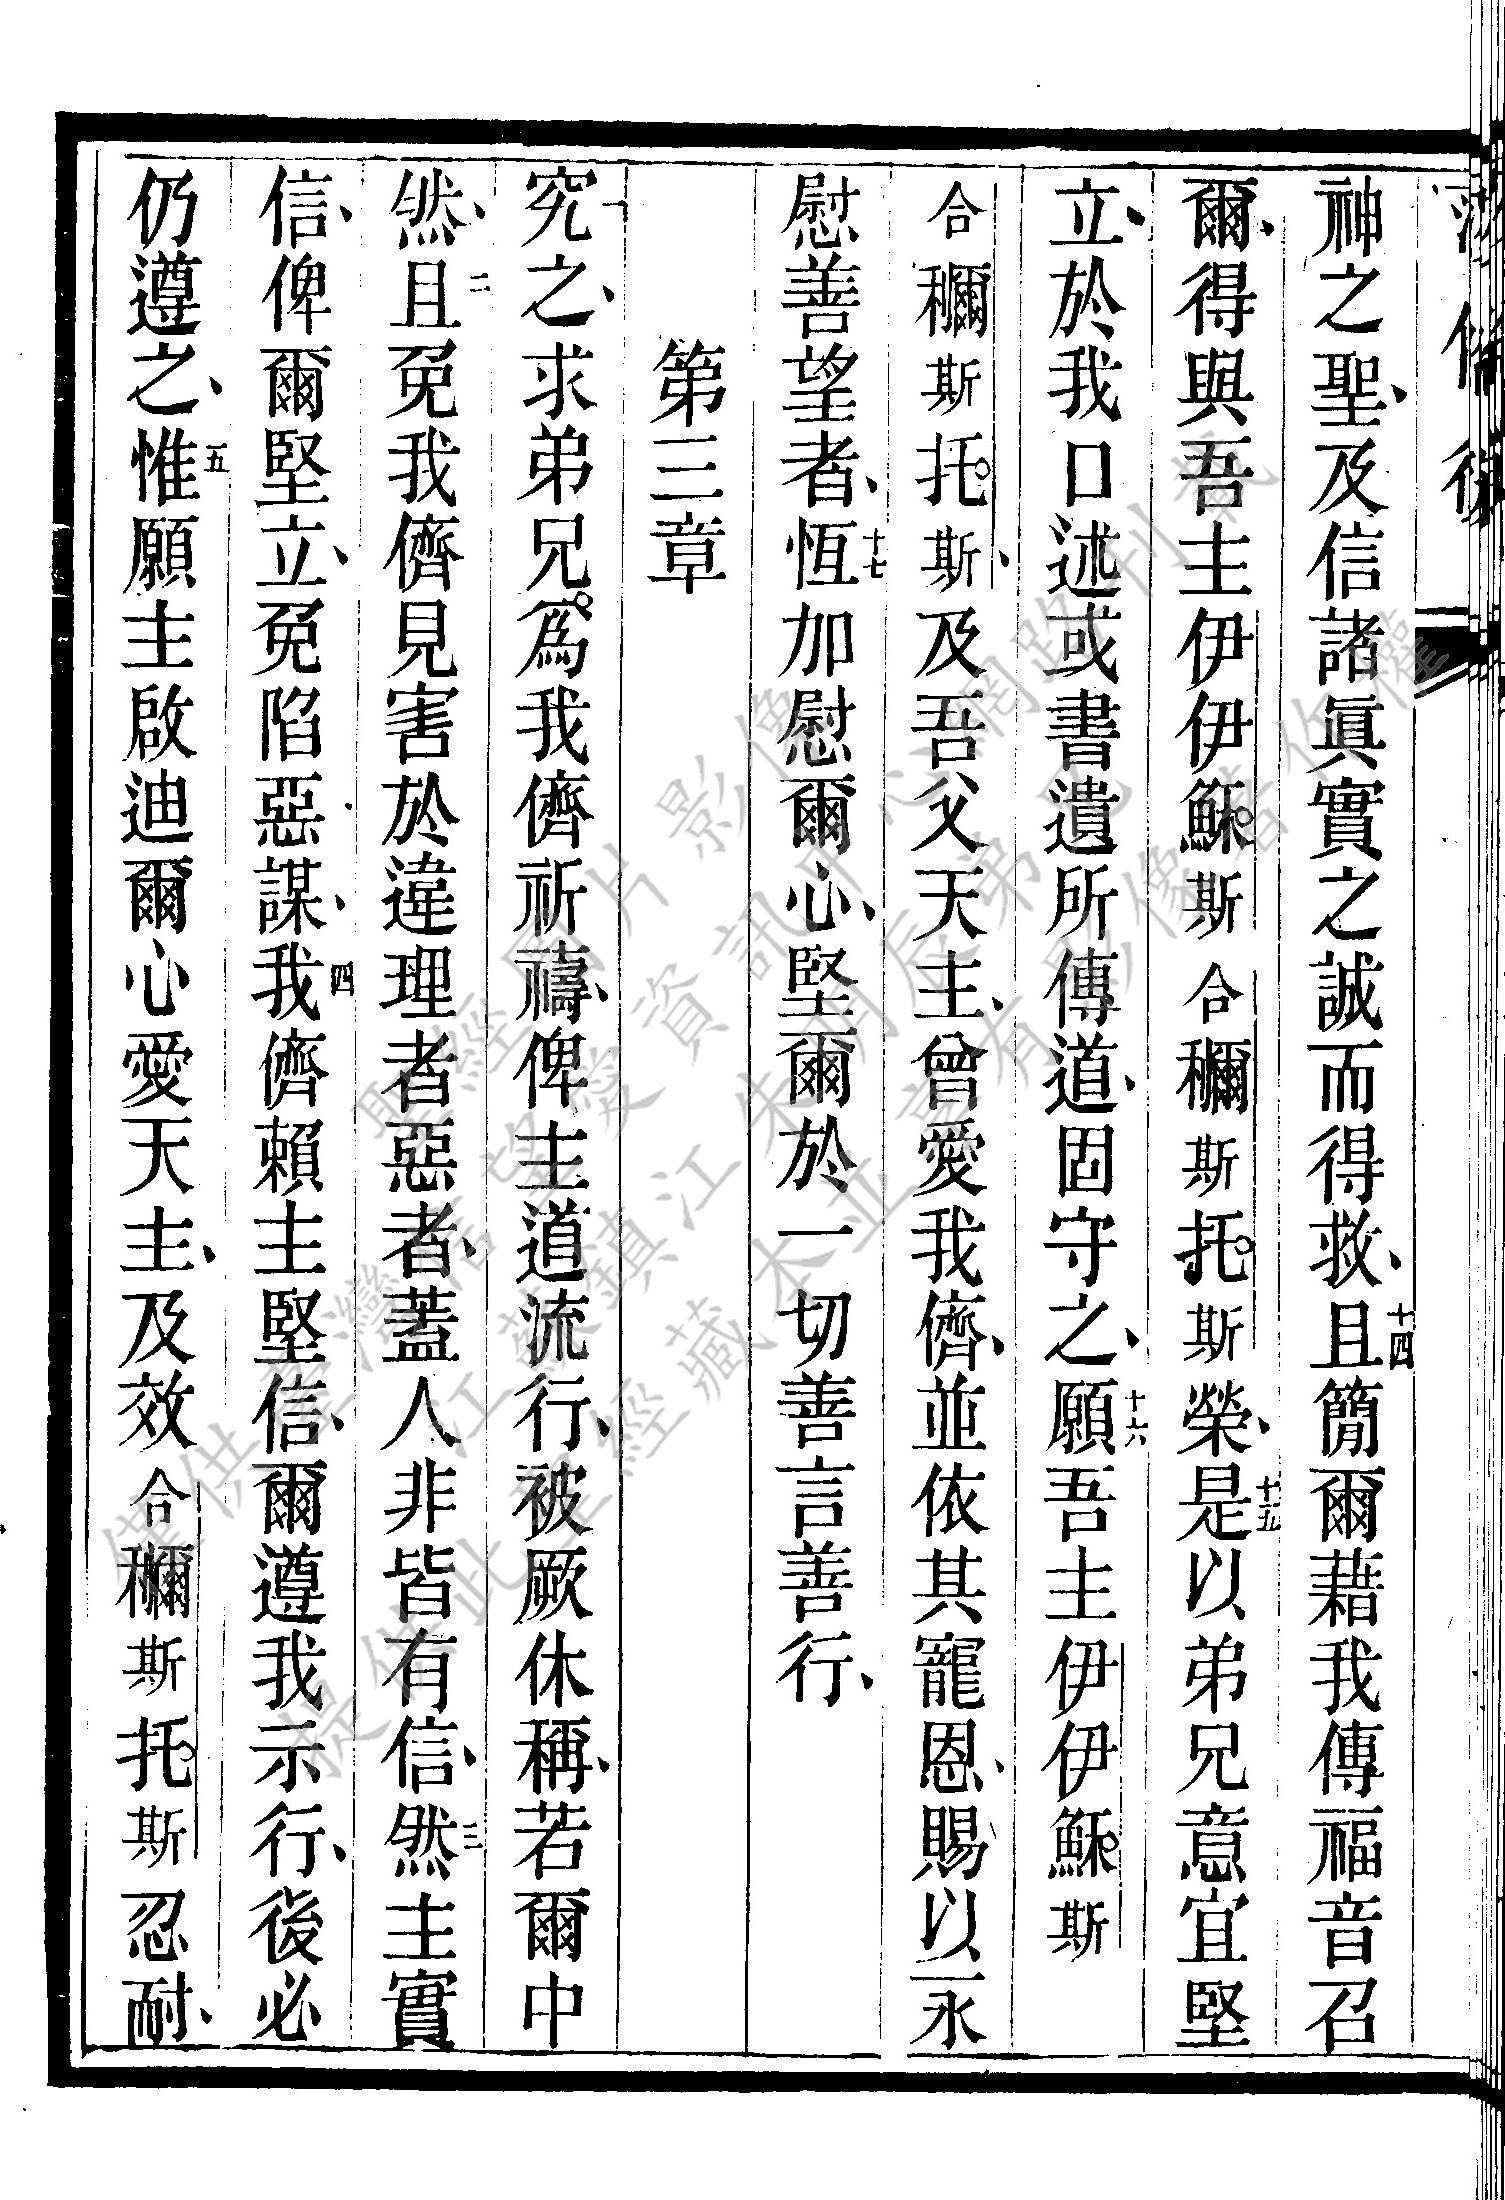 神之聖、及信諸眞實之誠而得救、十四且簡爾藉我傳福音召
爾、得與吾主伊伊穌。斯合穪斯托。斯榮、十五是以弟兄意宜堅
立、於我口述或書遺所傳道、固守之、十六願吾主伊伊穌。斯
合穪斯托。斯、及吾父天主、曾愛我儕、並依其寵恩、賜以永
慰善望者、十七恆加慰爾心、堅爾於一切善言善行、
第三章
一究之、求弟兄。爲我儕祈禱、俾主道流行、被厥休稱、若爾中
然、二且免我儕見害於違理者惡者、蓋人非皆有信、三然主實
信、俾爾堅立、免陷惡謀、四我儕賴主堅信、爾遵我示行、後必
仍遵之、五惟願主啟迪爾心愛天主、及效合穪斯托。斯忍耐、
僅供臺灣信望愛資訊中心網路刊載
聖經圖片影像